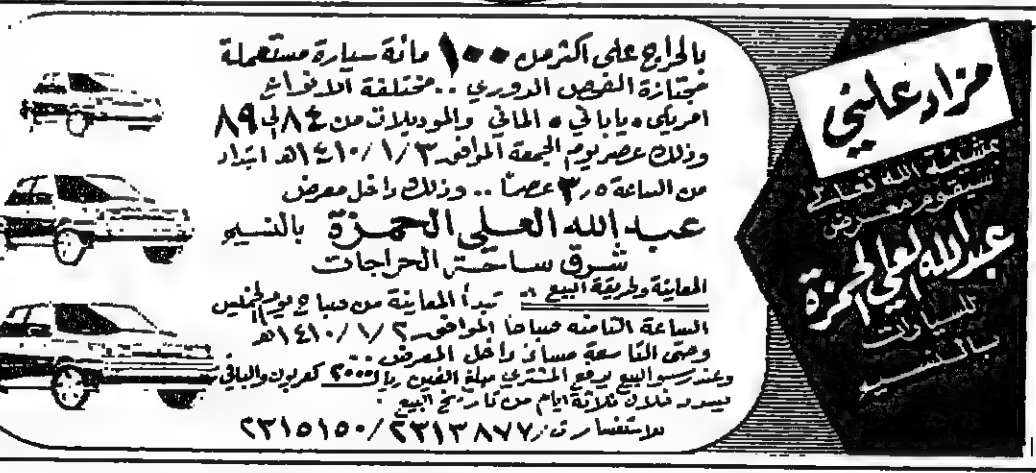 مزاد علني
بمشيئة الله تعالى
سيقوم معرض
عبدالله العلي الحمزة
للسيارات
بالنسيم
بالحراج على اكثر من ١٠٠ مائة سيارة مستعملة
مجتازة الفحص الدوري .. مختلفة الانواع
امريكي ، ياباني ، الماني والموديلات من ٨٤ الى ٨٩
وذلك عصر يوم الجمعة الموافق ١٤١٠/١/٣هـ ابتداء
من الساعة ٣٫٥ عصراً .. وذلك داخل معرض
عبد الله العلي الحمزة بالنسيم
شرق ساحة الحراجات
المعاينة وطريقة البيع : تبدأ المعاينة من صباح يوم الخميس
الساعة الثامنة صباحا الموافق ١٤١٠/١/٢هـ
وحتى التاسعة مساءً داخل المعرض
وعند رسو البيع يدفع المشتري مبلغ الفين ريال ٢٠٠٠ كعربون والباقي
يسدد خلال ثلاثة ايام من تاريخ البيع
للاستفسار ت: ٢٣١٣٨٧٧ / ٢٣١٥١٥٠